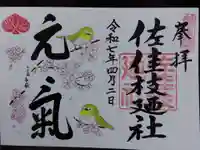 奉拝
佐佳枝廼社
令和七年四月二日
元氣